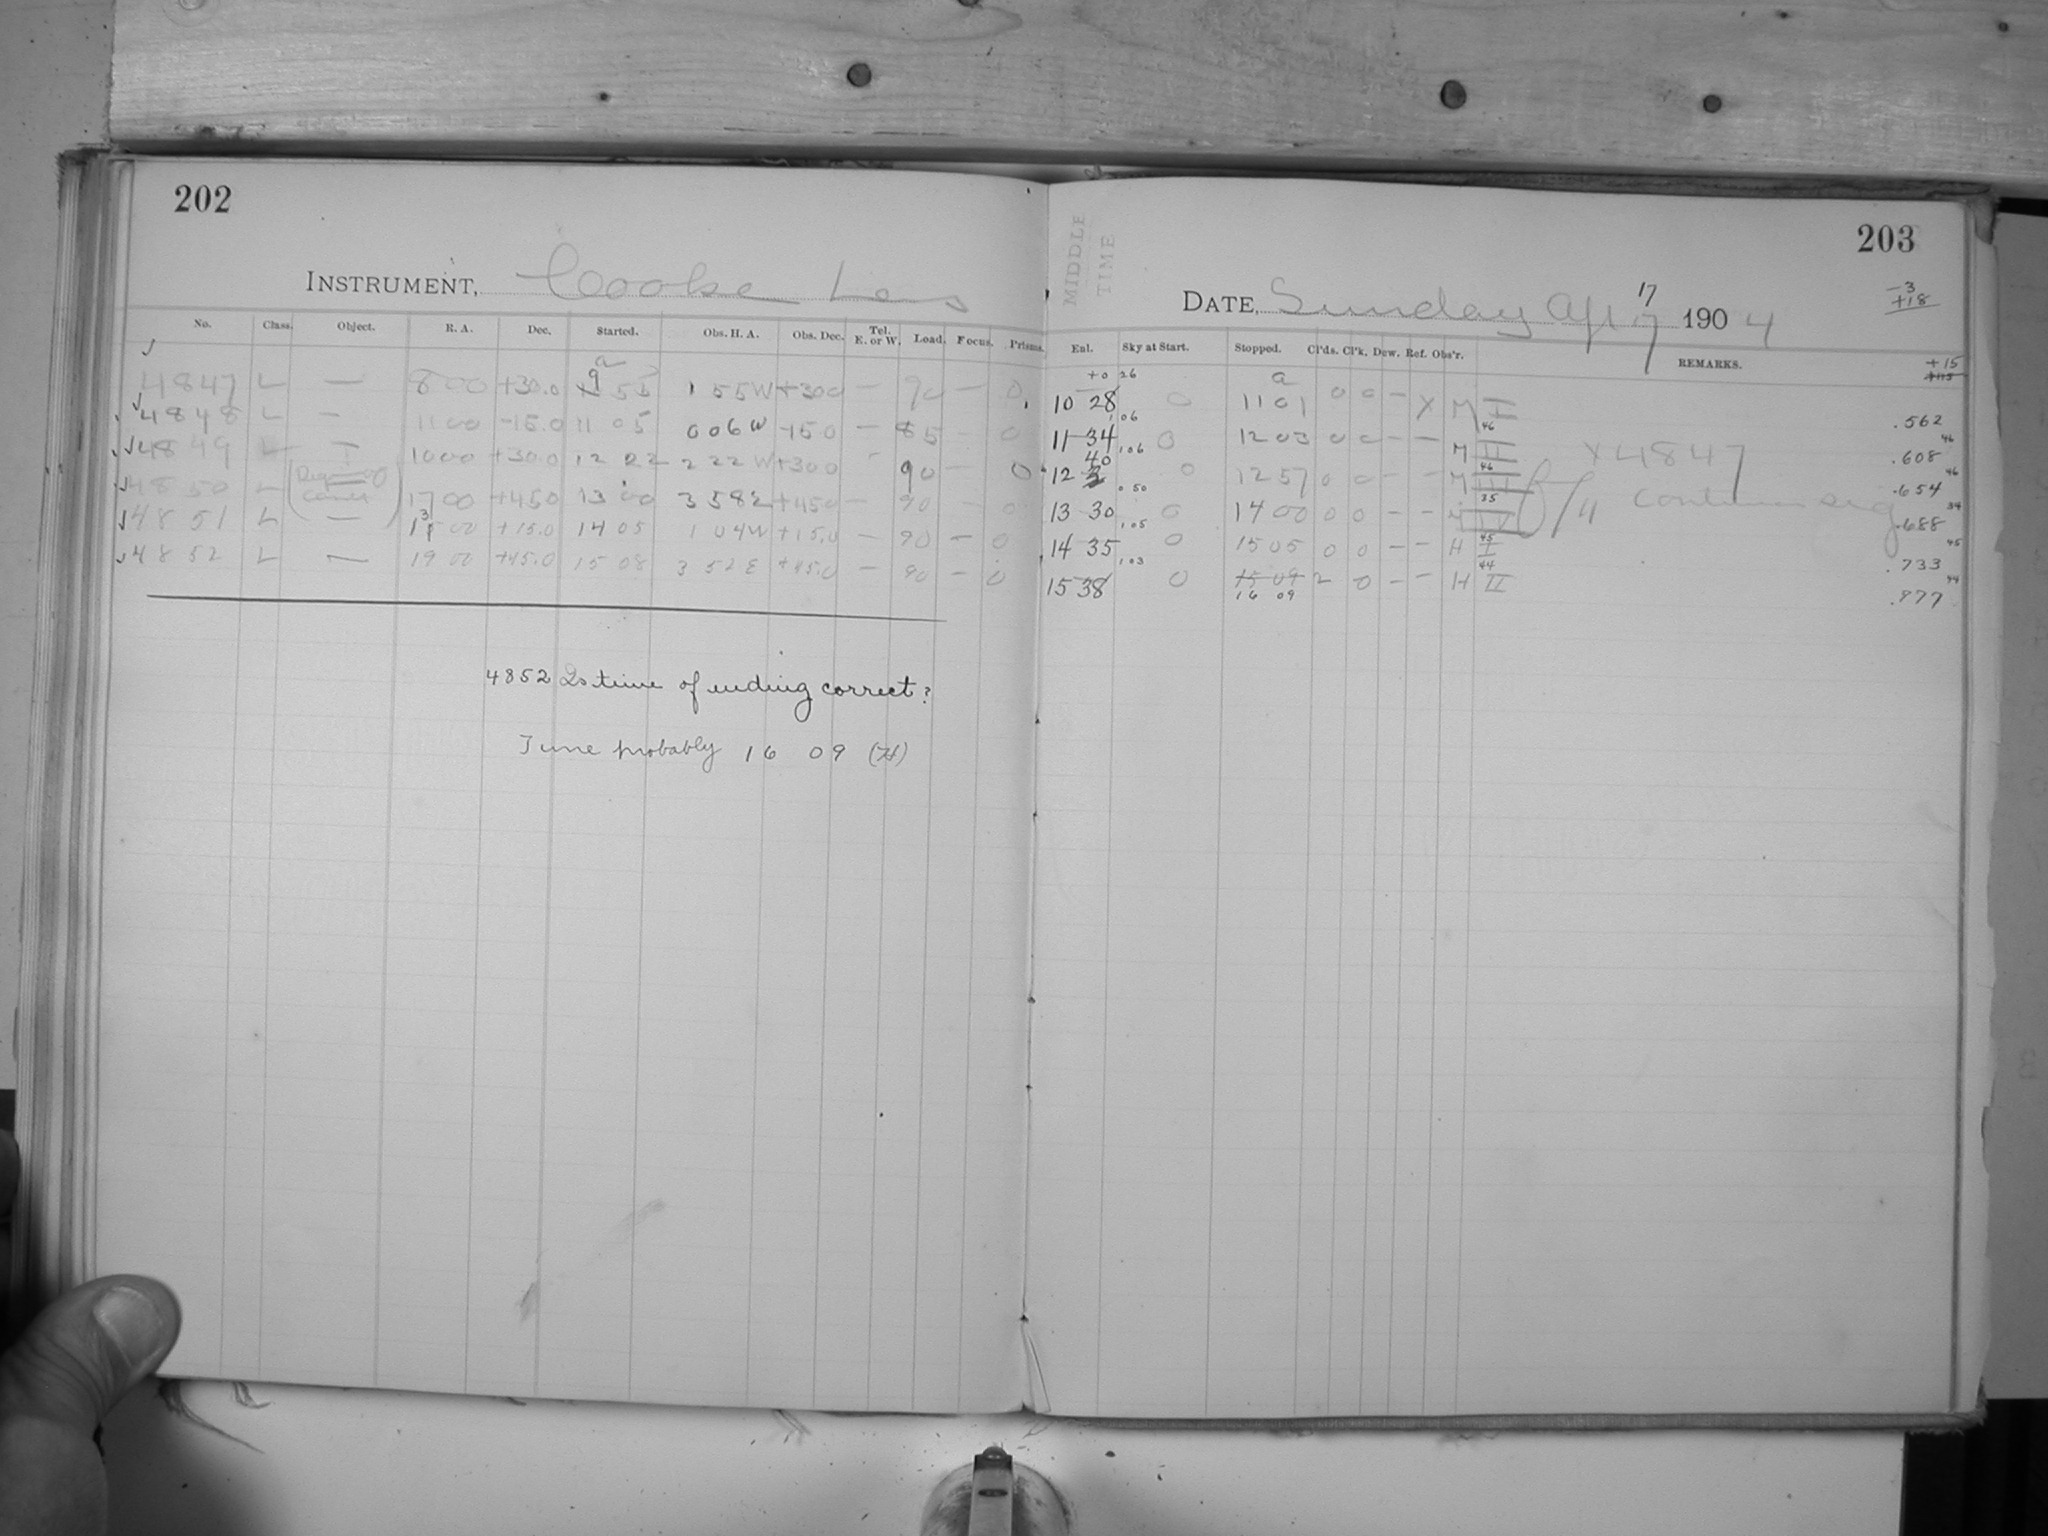 202
INSTRUMENT, Cooke Lens
No. Class. Object. R. A. Dec. Started. Obs. H. A. Obs. Dec. Tel. E. or W. Load. Focus. Prisms.
a
4847 L — 8 00 +30.0 9 55 1 55W +300 — 90 — 0
4848 L — 11 00 -15.0 11 05 0 06W -150 — 85 — 0
4849 L — 10 00 +30.0 12 22 2 22W +300 90 — 0
4850 L 17 00 +45.0 13 00 3 58E +450 — 90 — 0
4851 L — 13 00 +15.0 14 05 1 04W +15.0 — 90 — 0
4852 L — 19 00 +45.0 15 08 3 52E +45.0 — 90 — 0
4852 Is time of ending correct?
Time probably 16 09 (H)
MIDDLE TIME
203
DATE, Sunday Apr 17 17 1904
-3
+18
Enl. Sky at Start. Stopped. Cl'ds. Cl'k. Dew. Ref. Obs'r. REMARKS.
+15
+0 26 a
10 28 0 11 01 0 0 — X M I .562
1 06 46
11 34 0 12 03 0 0 — — M II X4847 .608 46
1 06 40 46
12 0 12 57 0 0 — — M III .654 46
0 50 35
13 30 0 14 00 0 0 — — .688 34
1 05 45
14 35 0 15 05 0 0 — — H I .733 45
1 03 44
15 38 0 15 09 2 0 — — H II .777 44
16 09